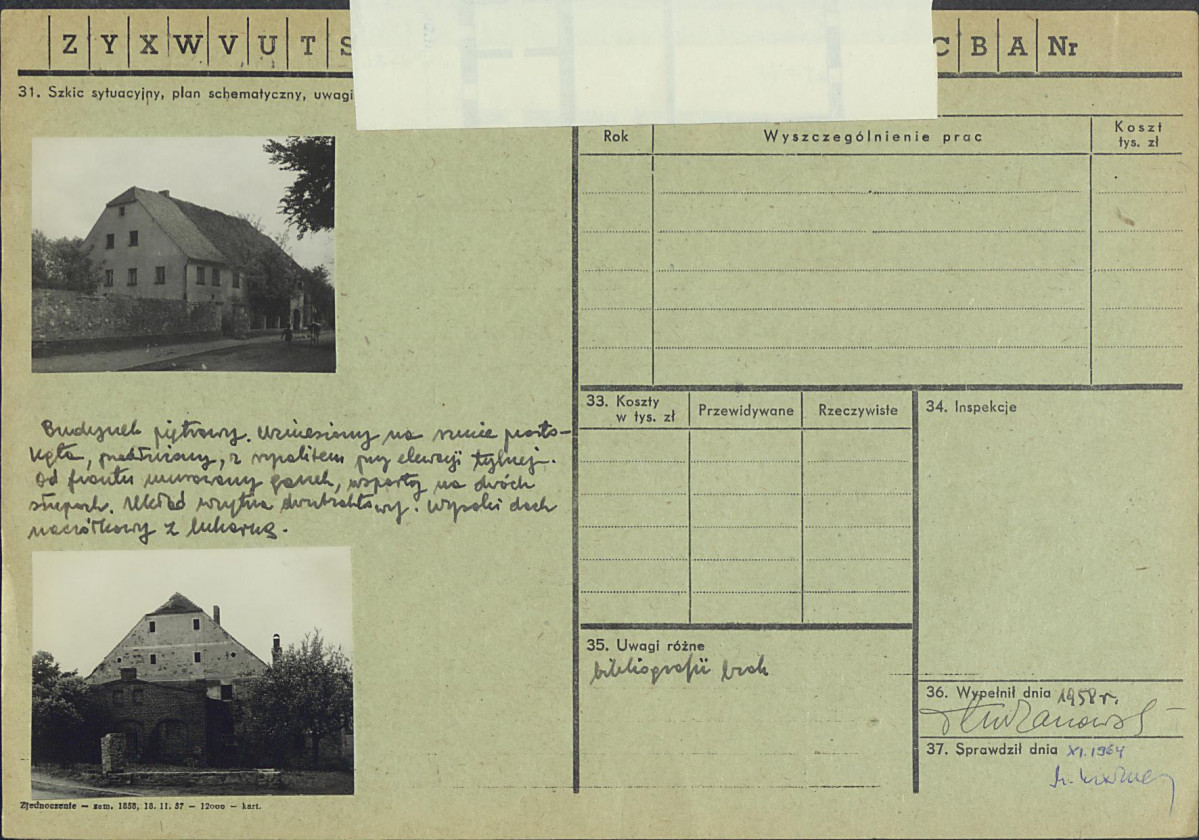 Z Y X W V U T S C B A Nr
31. Szkic sytuacyjny, plan schematyczny, uwagi
Rok Wyszczególnienie prac Koszt tys. zł
Budynek piętrowy. Wzniesiony na rzucie prosto-
kąta, podłużny, z ryzalitem przy elewacji tylnej.
Od frontu murowany ganek, wsparty na dwóch
słupach. Układ wnętrza dwutraktowy. Wysoki dach
naczółkowy z lukarną.
33. Koszty w tys. zł Przewidywane Rzeczywiste
34. Inspekcje
35. Uwagi różne
bibliografii brak
36. Wypełnił dnia 1958 r.
37. Sprawdził dnia XI.1964
Zjednoczenie — zam. 1858, 18. 11. 57 — 12000 — kart.